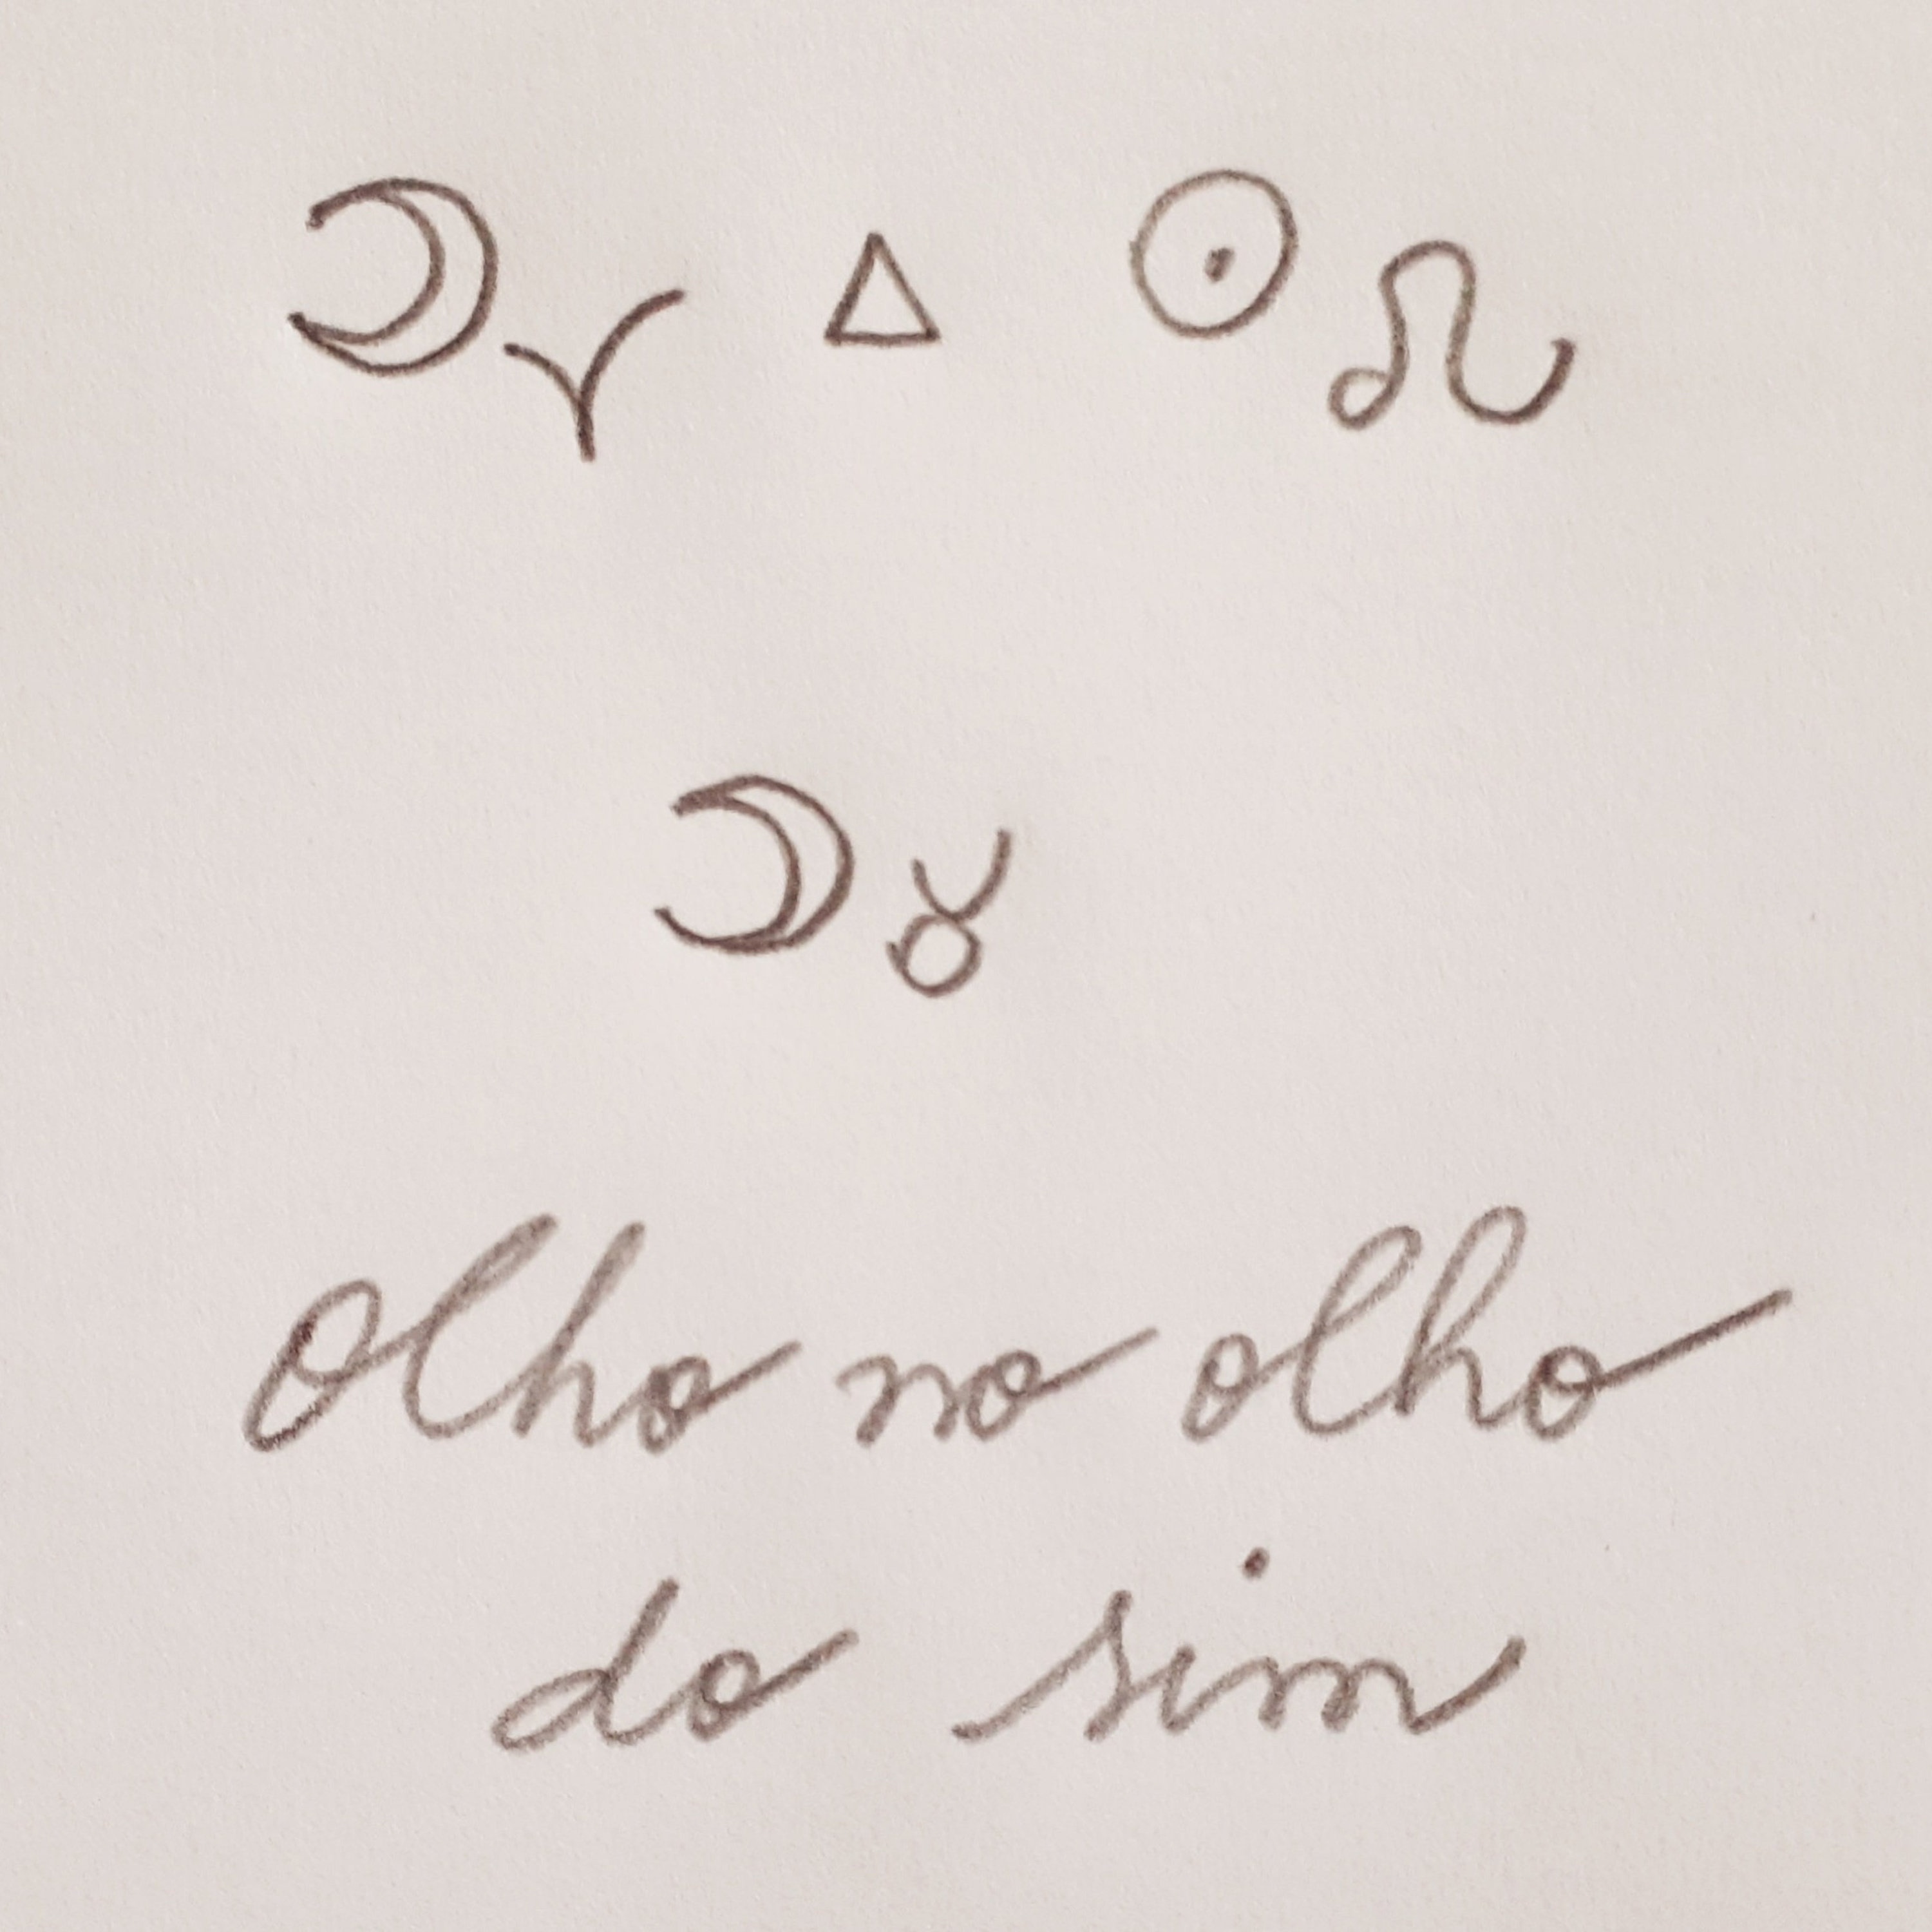 ☽♈ △ ☉♌
☽♉
Olho no olho
do sim